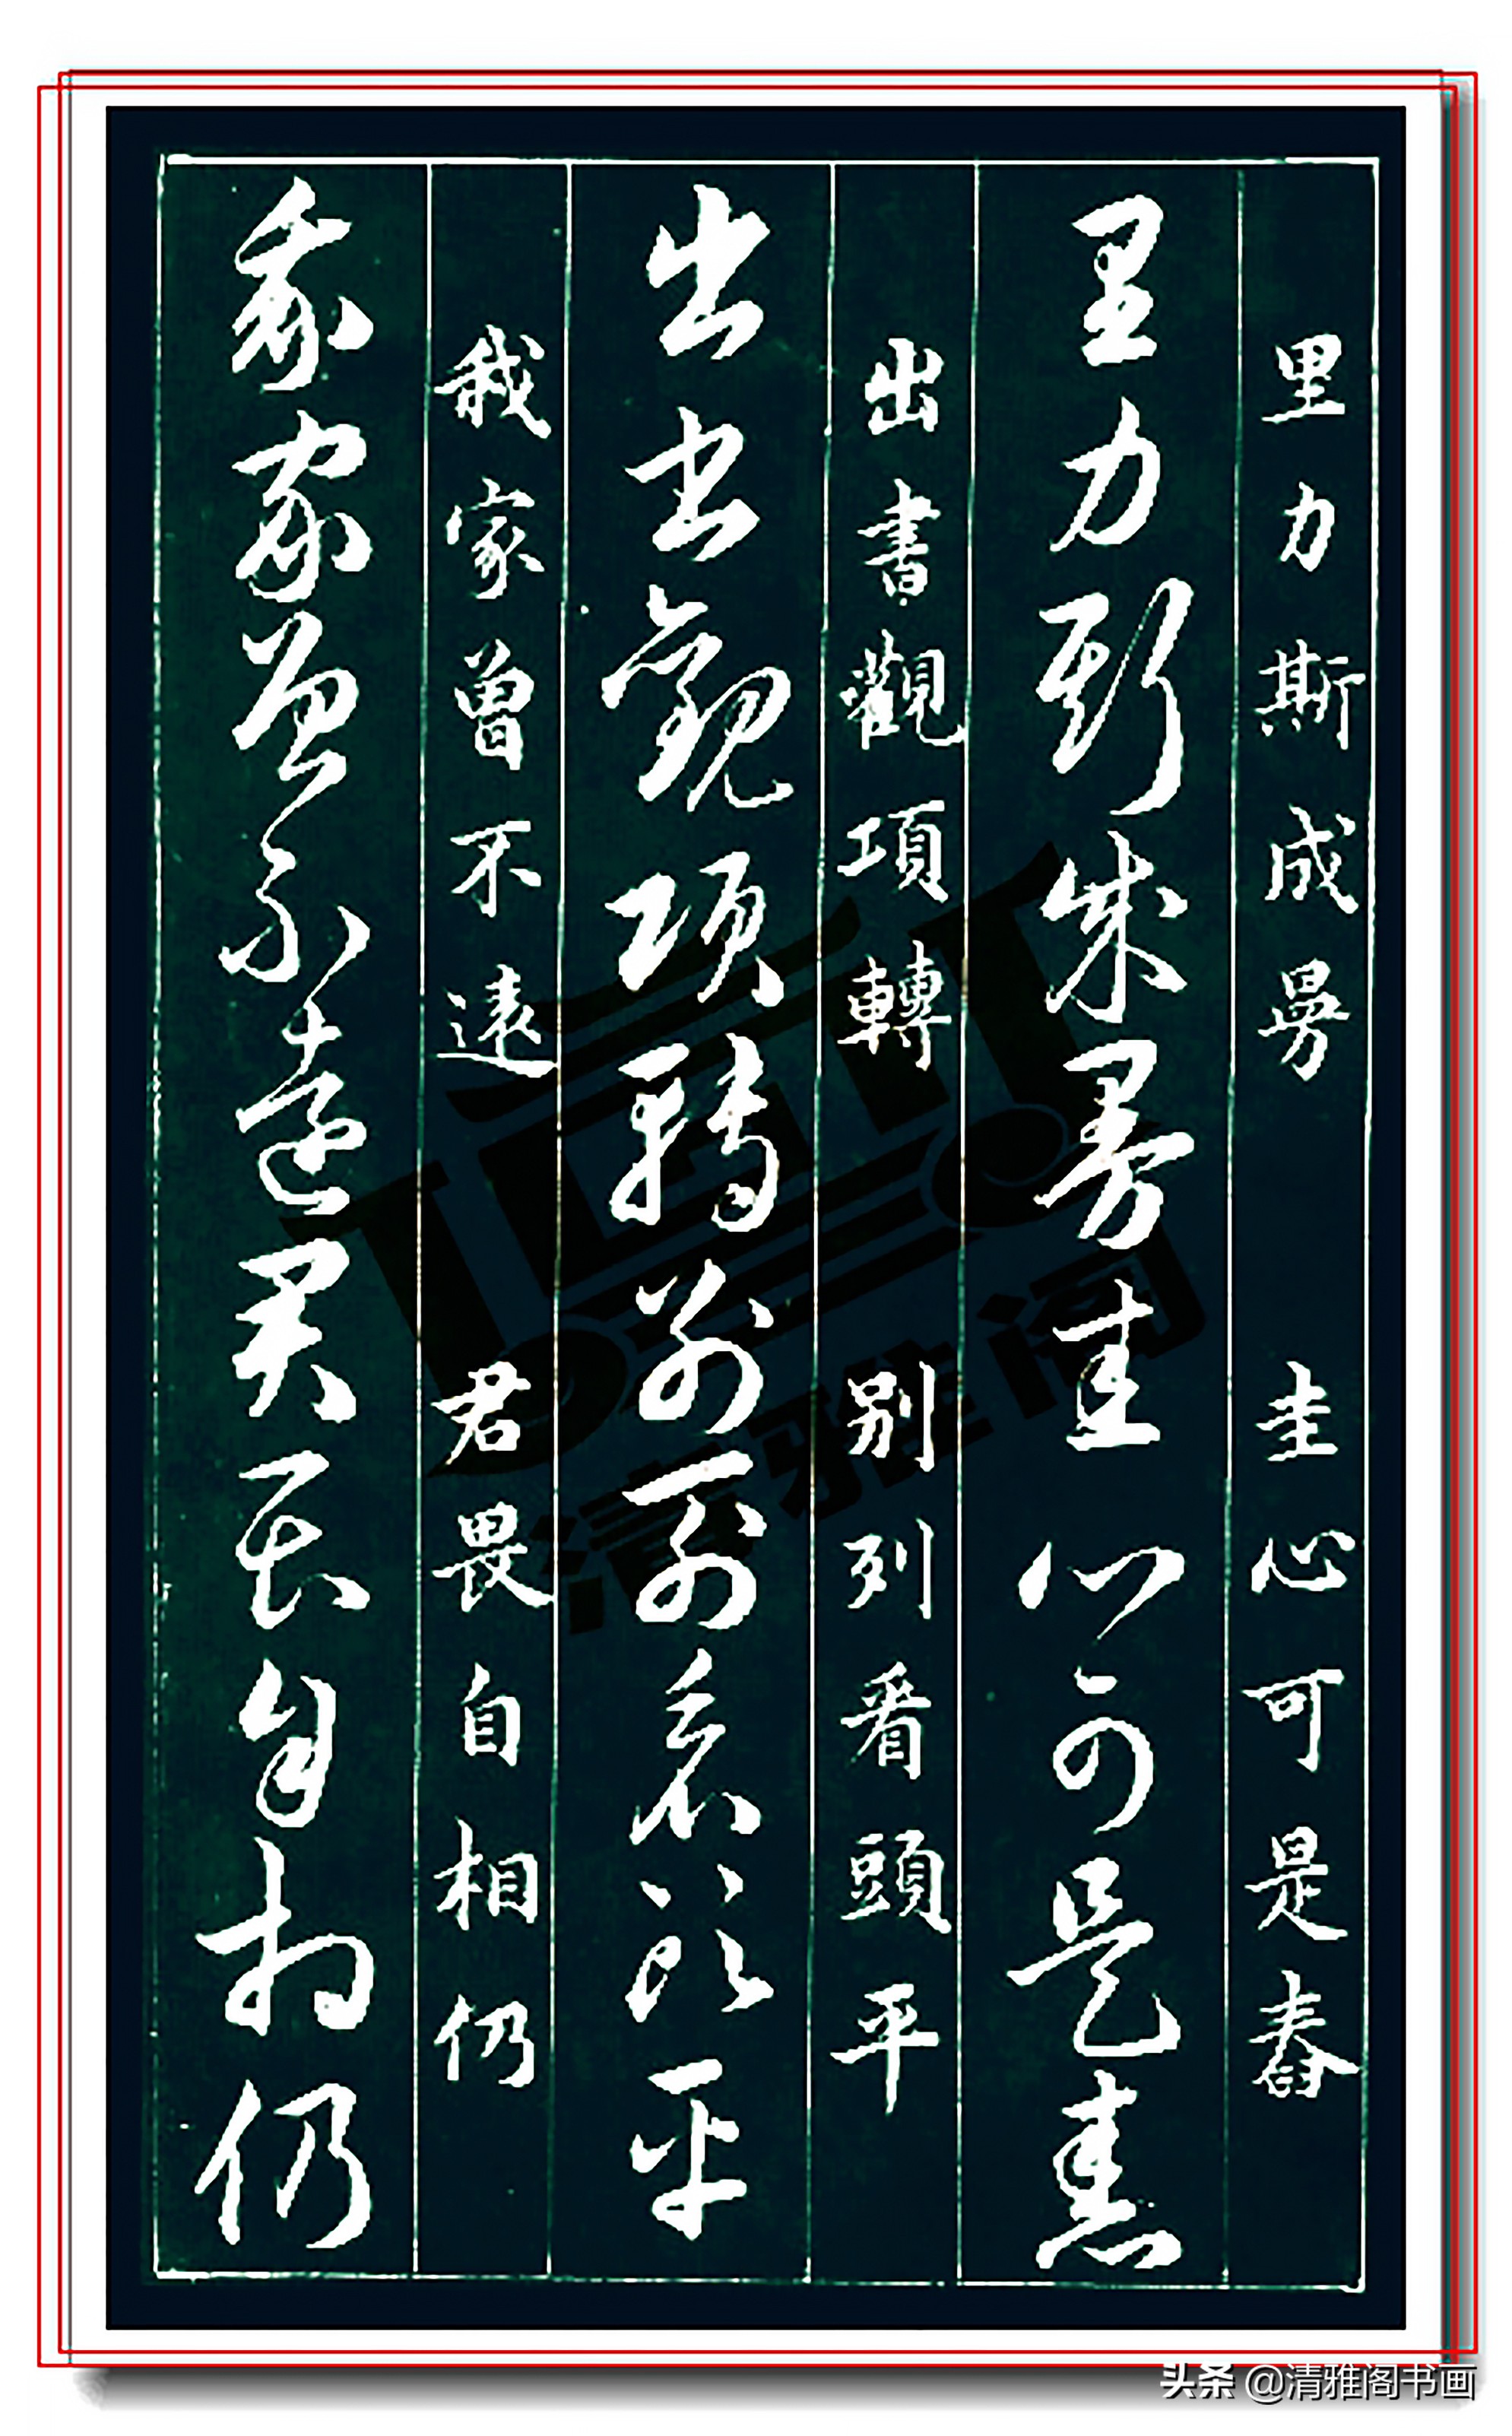 里力斯成曼 圭心可是舂
里力斯成曼圭心可是舂
出書觀項轉 别列看頭平
出書觀項轉别列看頭平
我家曾不遠 君畏自相仍
我家曾不遠君畏自相仍
清雅阁
头条 @清雅阁书画